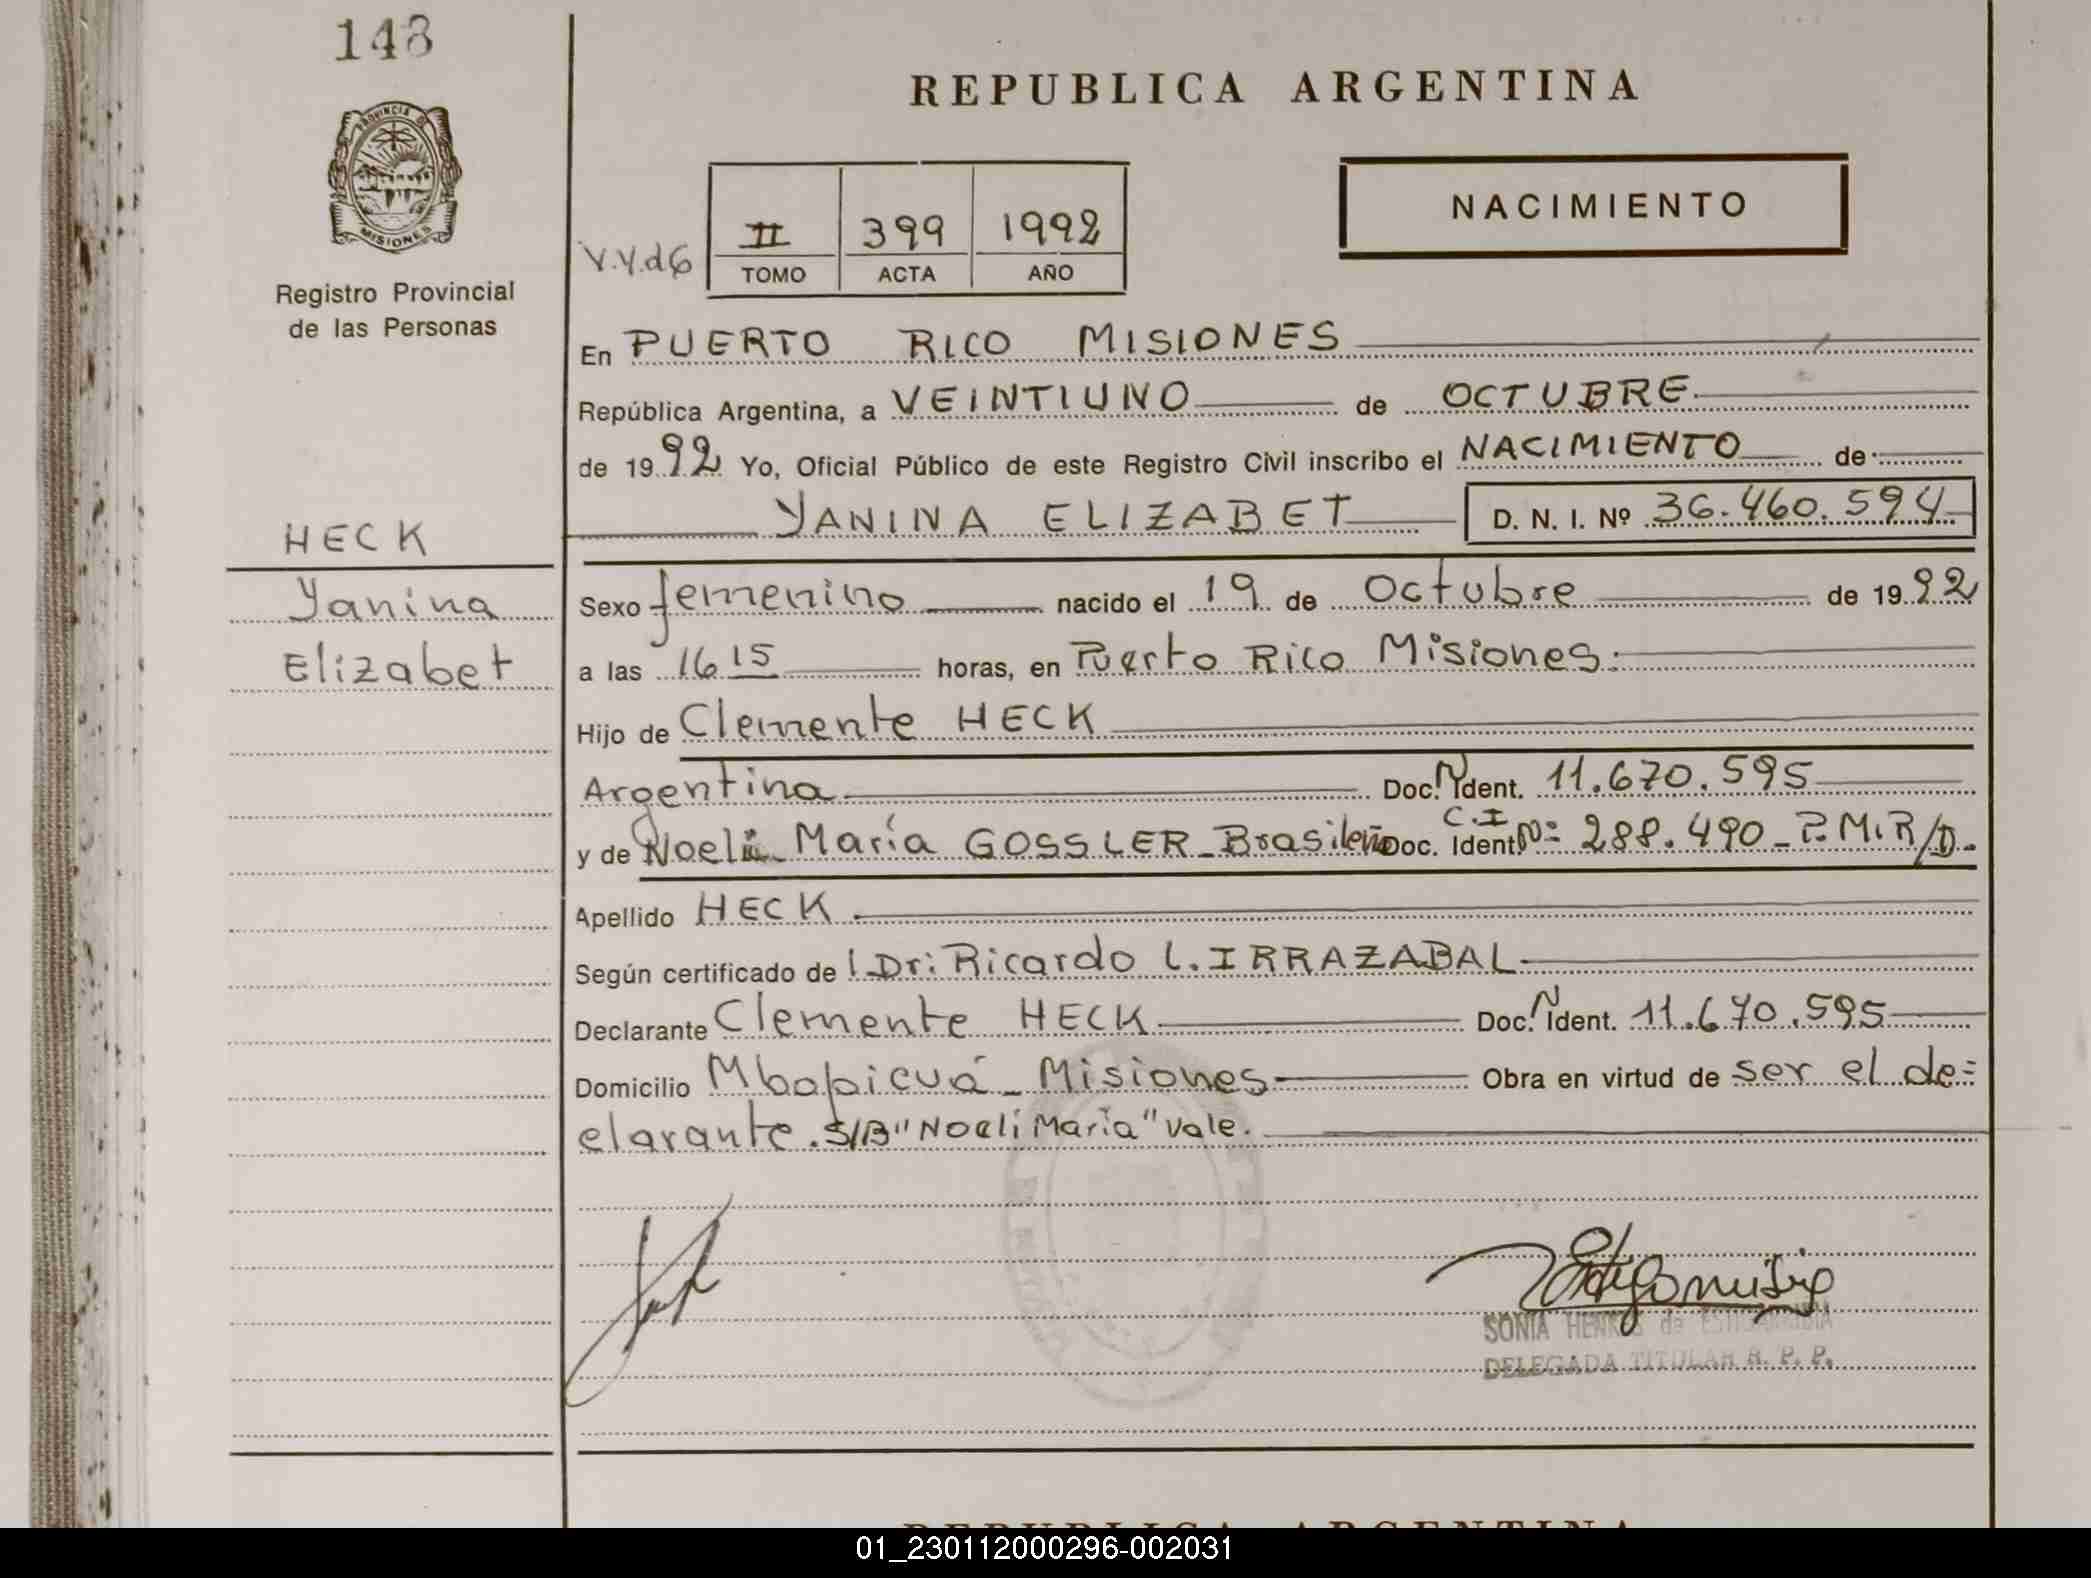 143
PROVINCIA DE
MISIONES
Registro Provincial
de las Personas
HECK
Yanina
Elizabet
REPUBLICA ARGENTINA
NACIMIENTO
V.V.d6
II 399 1992
TOMO ACTA AÑO
En PUERTO RICO MISIONES
República Argentina, a VEINTIUNO de OCTUBRE
de 1992 Yo, Oficial Público de este Registro Civil inscribo el NACIMIENTO de
YANINA ELIZABET D. N. I. Nº 36.460.594
Sexo femenino nacido el 19 de Octubre de 1992
a las 16 15 horas, en Puerto Rico Misiones.
Hijo de Clemente HECK
Argentina Doc. N Ident. 11.670.595
y de Noeli María GOSSLER_Brasileña Doc. C.I Ident Nº 288.490_P.M.R/D.
Apellido HECK
Según certificado de Dr: Ricardo L. IRRAZABAL
Declarante Clemente HECK Doc. N Ident. 11.670.595
Domicilio Mbopicuá_Misiones Obra en virtud de ser el de=
clarante. S/B "Noeli María" Vale.
SONIA de
DELEGADA TITULAR R. P. P.
REPUBLICA ARGENTINA
01_230112000296-002031